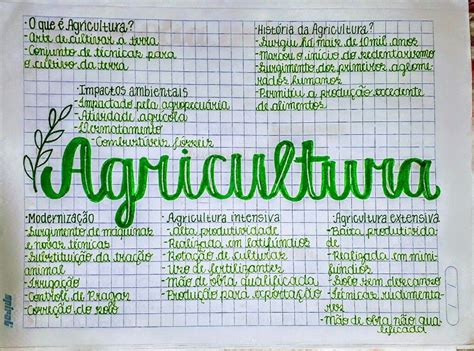 - O que é Agricultura?
- Arte de cultivar a terra
- Conjunto de técnicas para
o cultivo da terra
- História da Agricultura?
- Surgiu há mais de 10 mil anos
- Marcou o início do sedentarismo
- Surgimento dos primeiros aglome
rados humanos
- Permitiu a produção excedente
de alimentos
- Impactos ambientais
- Impactado pela agropecuária
- Atividade agrícola
- Desmatamento
- Combustíveis fósseis
Agricultura
- Modernização
- Surgimento de máquinas
e novas técnicas
- Substituição da tração
animal
- Irrigação
- Controle de Pragas
- Correção do solo
Agricultura intensiva
- Alta produtividade
- Realizada em latifúndios
- Rotação de culturas
- Uso de fertilizantes
- Mão de obra qualificada
- Produção para exportação
Agricultura extensiva
- Baixa produtivida
de
- Realizada em mini
fúndios
- Solo sem descanso
- Técnicas rudimenta
res
- Mão de obra não qua
lificada